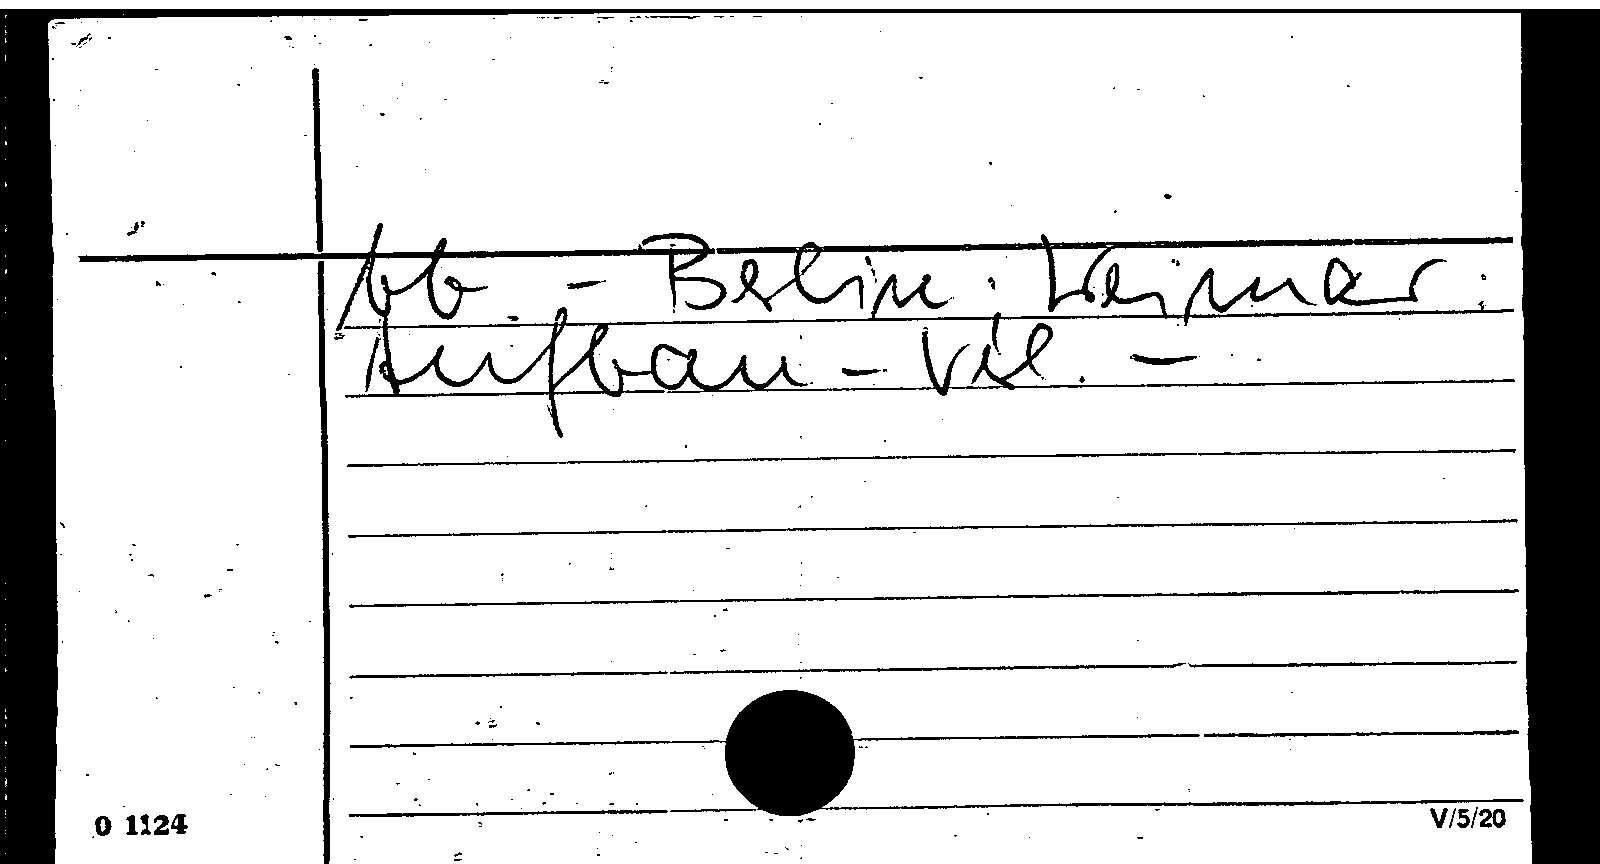 bb. - Berlin: Weimar:
Aufbau-Verl. -
O 1124
V/5/20